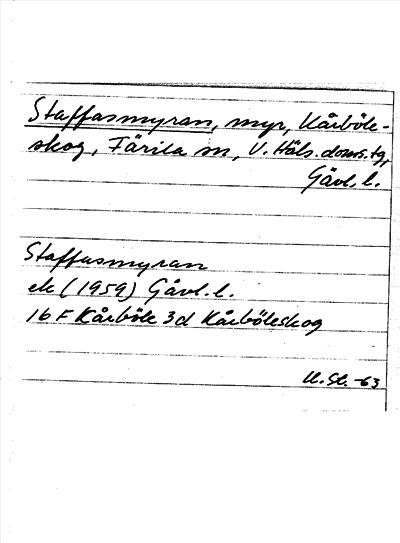 Staffasmyran, myr, Kårböle-
skog, Färila sn, V. Häls. doms.tg,
Gävl. l.
Staffasmyran
ek (1959) Gävl. l.
16 F Kårböle 3d Kårböleskog
U. St. -63